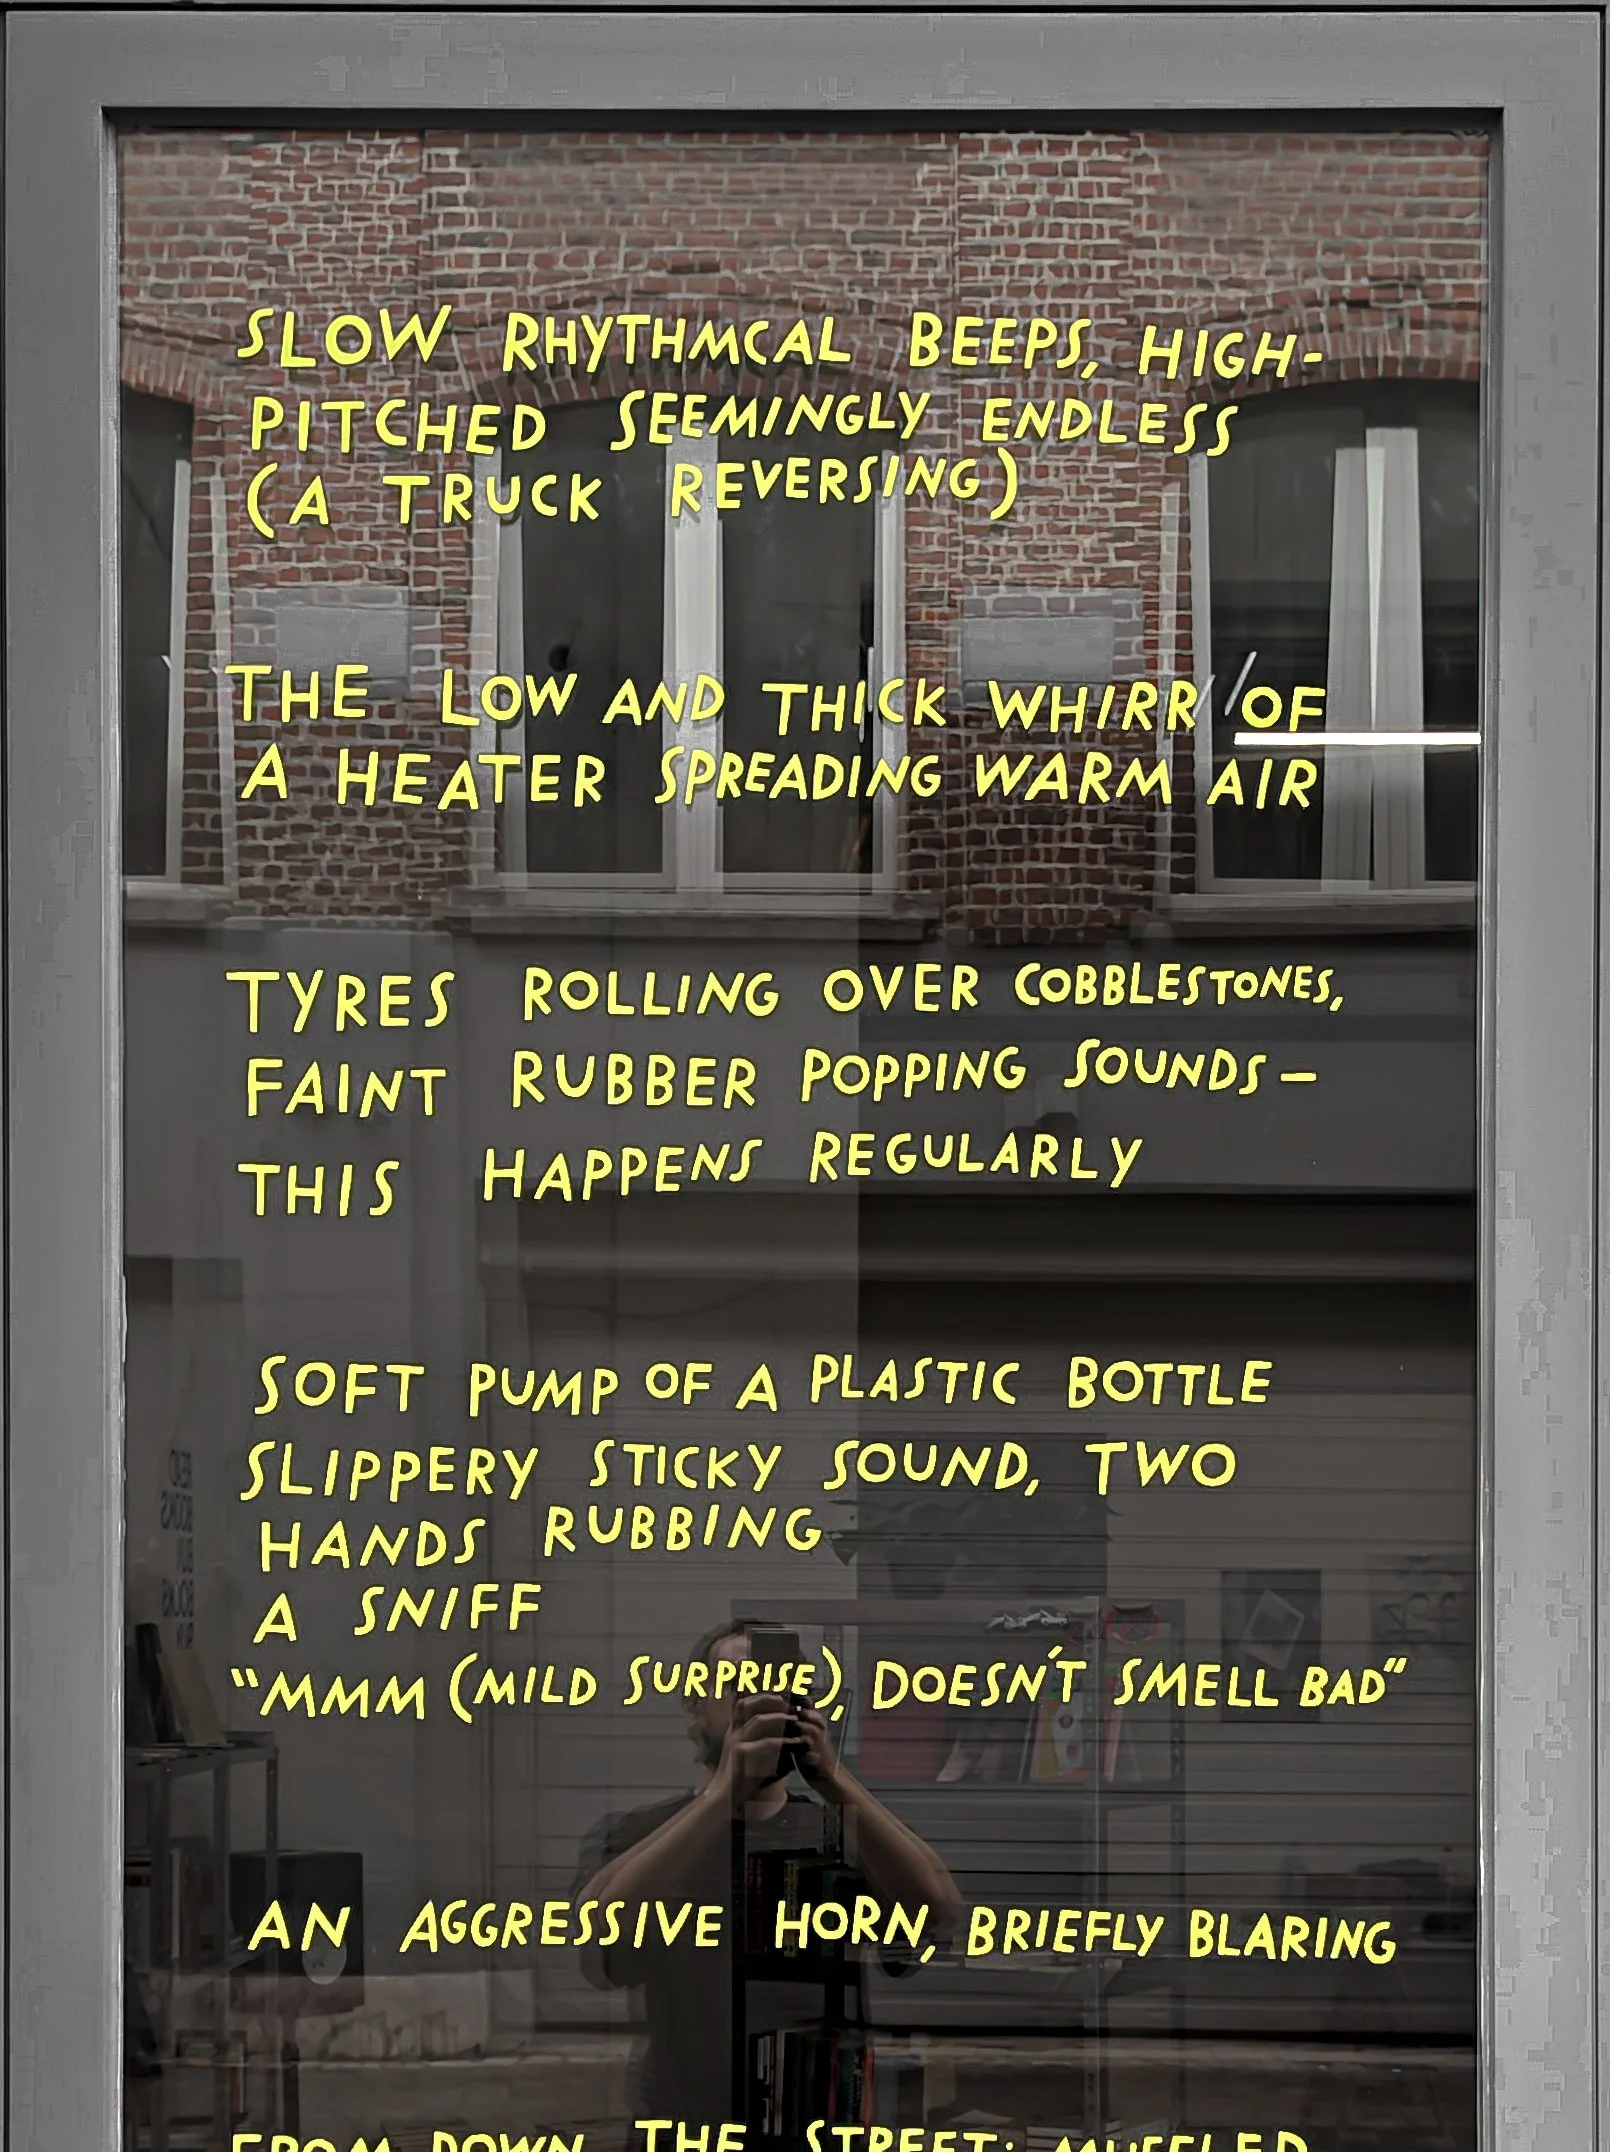 SLOW RHYTHMCAL BEEPS, HIGH-
PITCHED SEEMINGLY ENDLESS
(A TRUCK REVERSING)
THE LOW AND THICK WHIRR OF
A HEATER SPREADING WARM AIR
TYRES ROLLING OVER COBBLESTONES,
FAINT RUBBER POPPING SOUNDS –
THIS HAPPENS REGULARLY
SOFT PUMP OF A PLASTIC BOTTLE
SLIPPERY STICKY SOUND, TWO
HANDS RUBBING
A SNIFF
"MMM (MILD SURPRISE), DOESN'T SMELL BAD"
AN AGGRESSIVE HORN, BRIEFLY BLARING
FROM DOWN THE STREET: MUFFLED